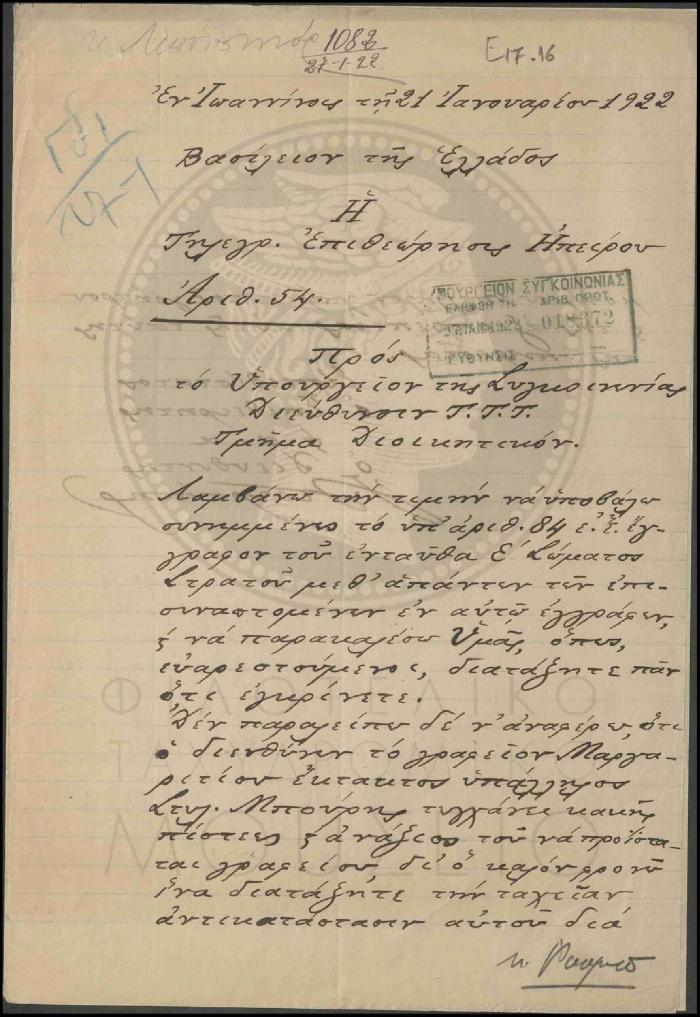 1082
27-1-22
E17.16
Ἐν Ἰωαννίνοις τῇ 21 Ἰανουαρίου 1922
Βασίλειον τῆς Ἑλλάδος
Ἡ
Τηλεγρ. Ἐπιθεώρησις Ἠπείρου
Ἀριθ. 54.
ΠΟΥΡΓΕΙΟΝ ΣΥΓΚΟΙΝΩΝΙΑΣ
ΕΛΗΦΘΗ ΤΗ ΑΡΙΘ. ΠΡΩΤ.
018372
Πρός
τὸ Ὑπουργεῖον τῆς Συγκοινωνίας
Διεύθυνσιν Τ.Τ.Τ.
Τμῆμα Διοικητικόν.
Λαμβάνω τὴν τιμὴν νὰ ὑποβάλω
συνημμένως τὸ ὑπ' ἀριθ. 84 ἐ.ἔ. ἔγ-
γραφον τοῦ ἐνταῦθα Ε' Σώματος
Στρατοῦ μεθ' ἁπάντων τῶν ἐπι-
συναπτομένων ἐν αὐτῷ ἐγγράφων,
ξ νὰ παρακαλέσω Ὑμᾶς, ὅπως,
εὐαρεστούμενοι, διατάξητε πᾶν
ὅ,τι ἐγκρίνετε.
Δὲν παραλείπω δέ ν' ἀναφέρω, ὅτι
ὁ διευθύνων τὸ γραφεῖον Μαργα-
ριτίου ἔκτακτος ὑπάλληλος
Στυλ. Μπούρης τυγχάνει κακῆς
πίστεως ξ ἀνάξιος τοῦ νὰ προΐστα-
ται γραφείου, δι' ὃ καλὸν φρονῶ
ἵνα διατάξητε τὴν ταχεῖαν
ἀντικατάστασιν αὐτοῦ διὰ
ΦΙΛΟΤΕΛΙΚΟ
ΤΑΧΥΔΡΟΜΙΚΟ
ΜΟΥΣΕΙΟ